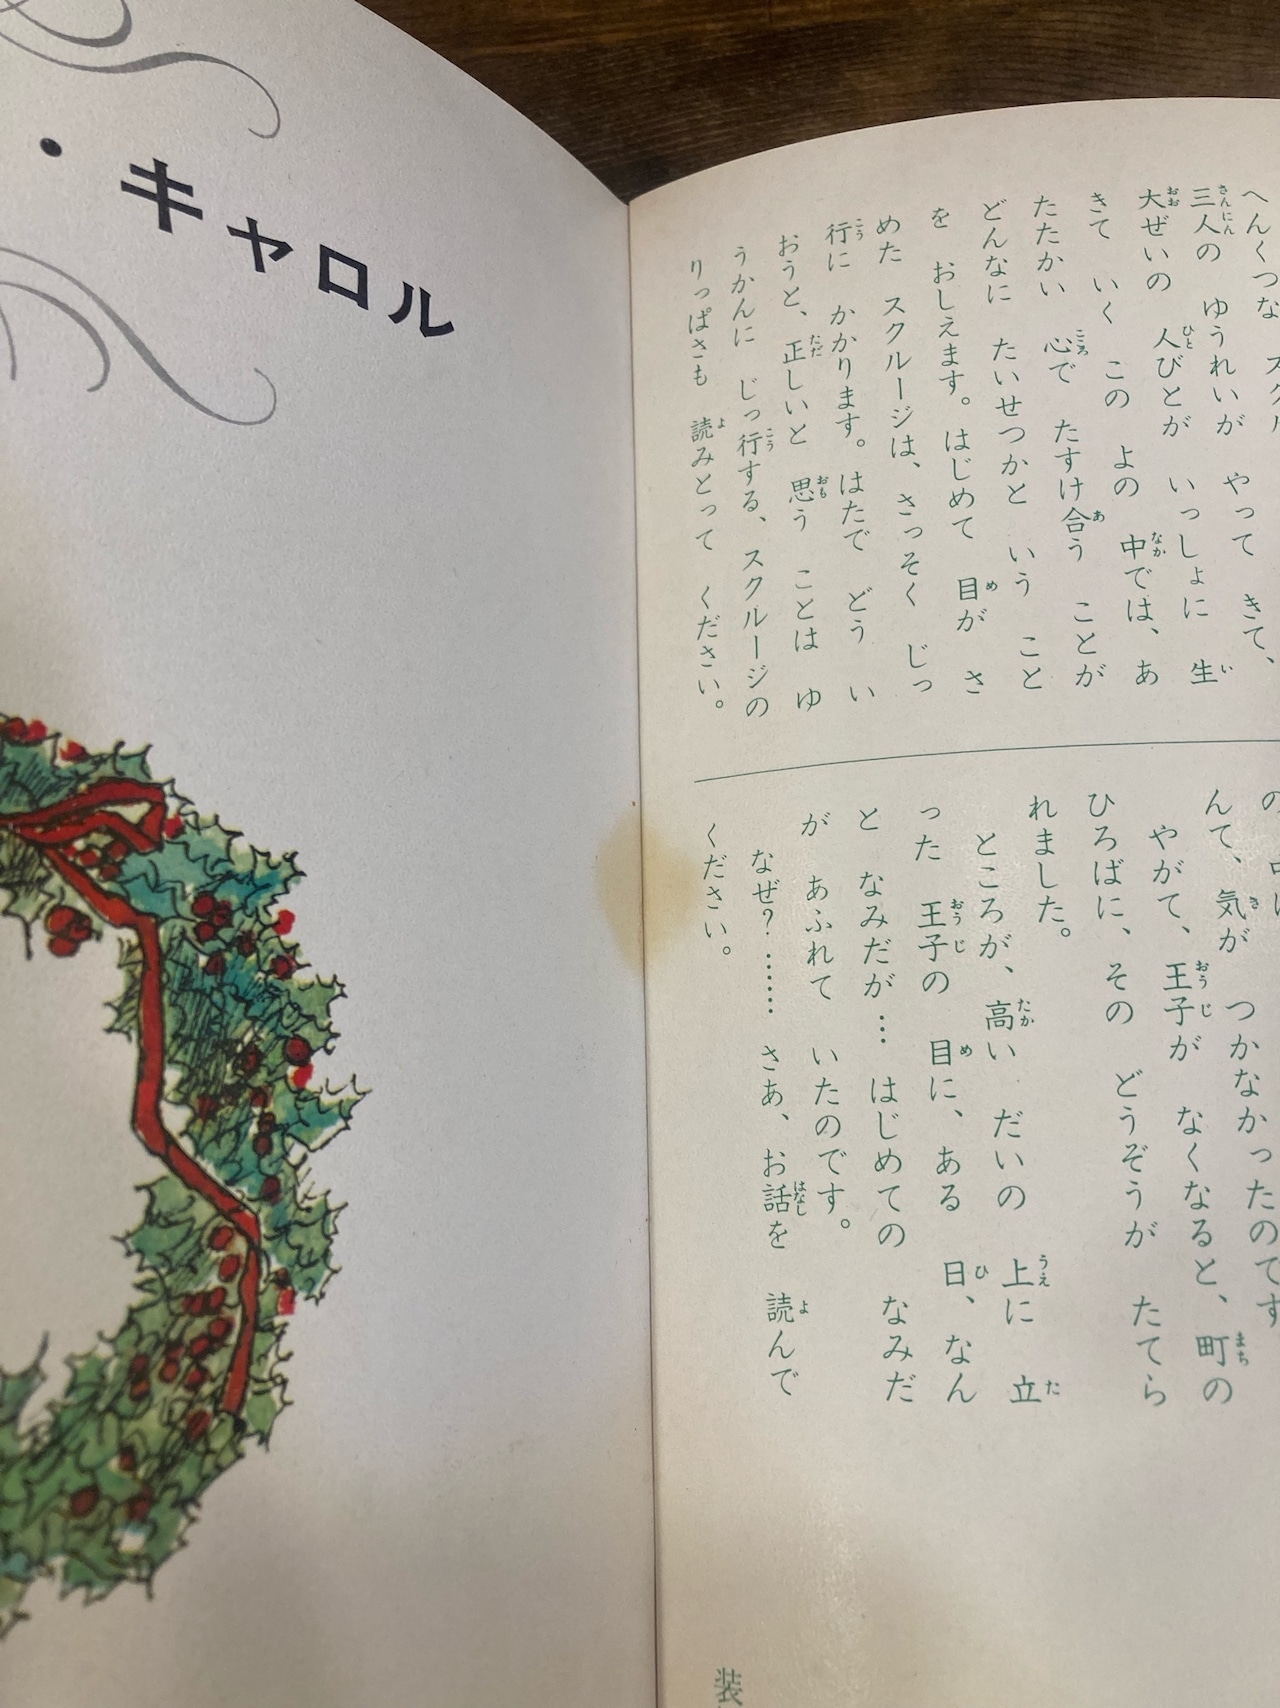 ・キャロル
へんくつな スクル
三人の ゆうれいが やって きて、
大ぜいの 人びとが いっしょに 生
きて いく この よの 中では、あ
たたかい 心で たすけ合う ことが
どんなに たいせつかと いう こと
を おしえます。はじめて 目が さ
めた スクルージは、さっそく じっ
行に かかります。はたで どう い
おうと、正しいと 思う ことは ゆ
うかんに じっ行する、スクルージの
りっぱさも 読みとって ください。
んて、気が つかなかったのです
やがて、王子が なくなると、町の
ひろばに、その どうぞうが たてら
れました。
ところが、高い だいの 上に 立
った 王子の 目に、ある 日、なん
と なみだが… はじめての なみだ
が あふれて いたのです。
なぜ?…… さあ、お話を 読んで
ください。
装